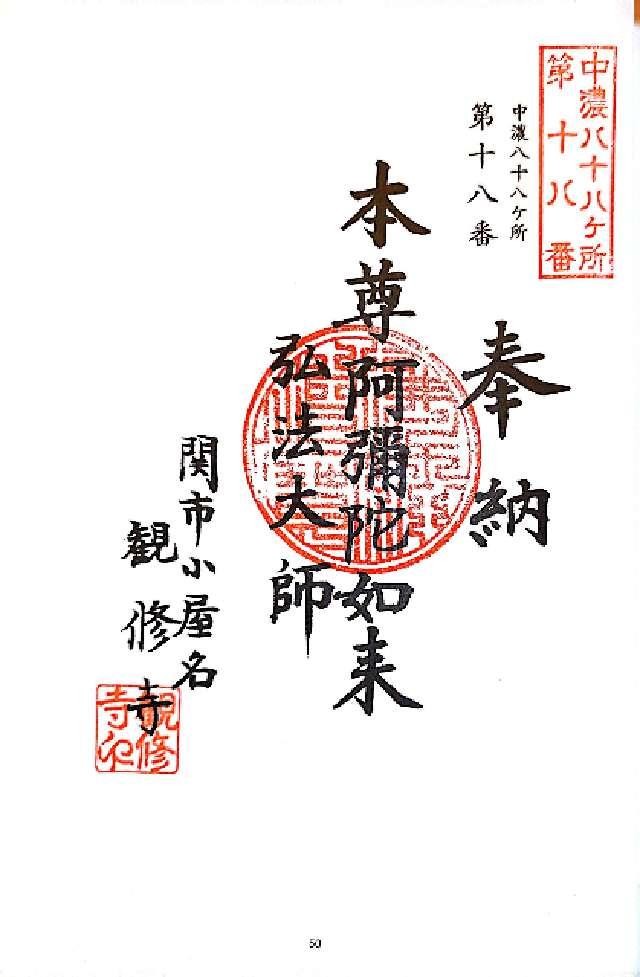 中濃八十八ケ所
第十八番
中濃八十八ケ所
第十八番
奉納
本尊阿彌陀如来
弘法大師
関市小屋名
観修寺
観修
寺印
50